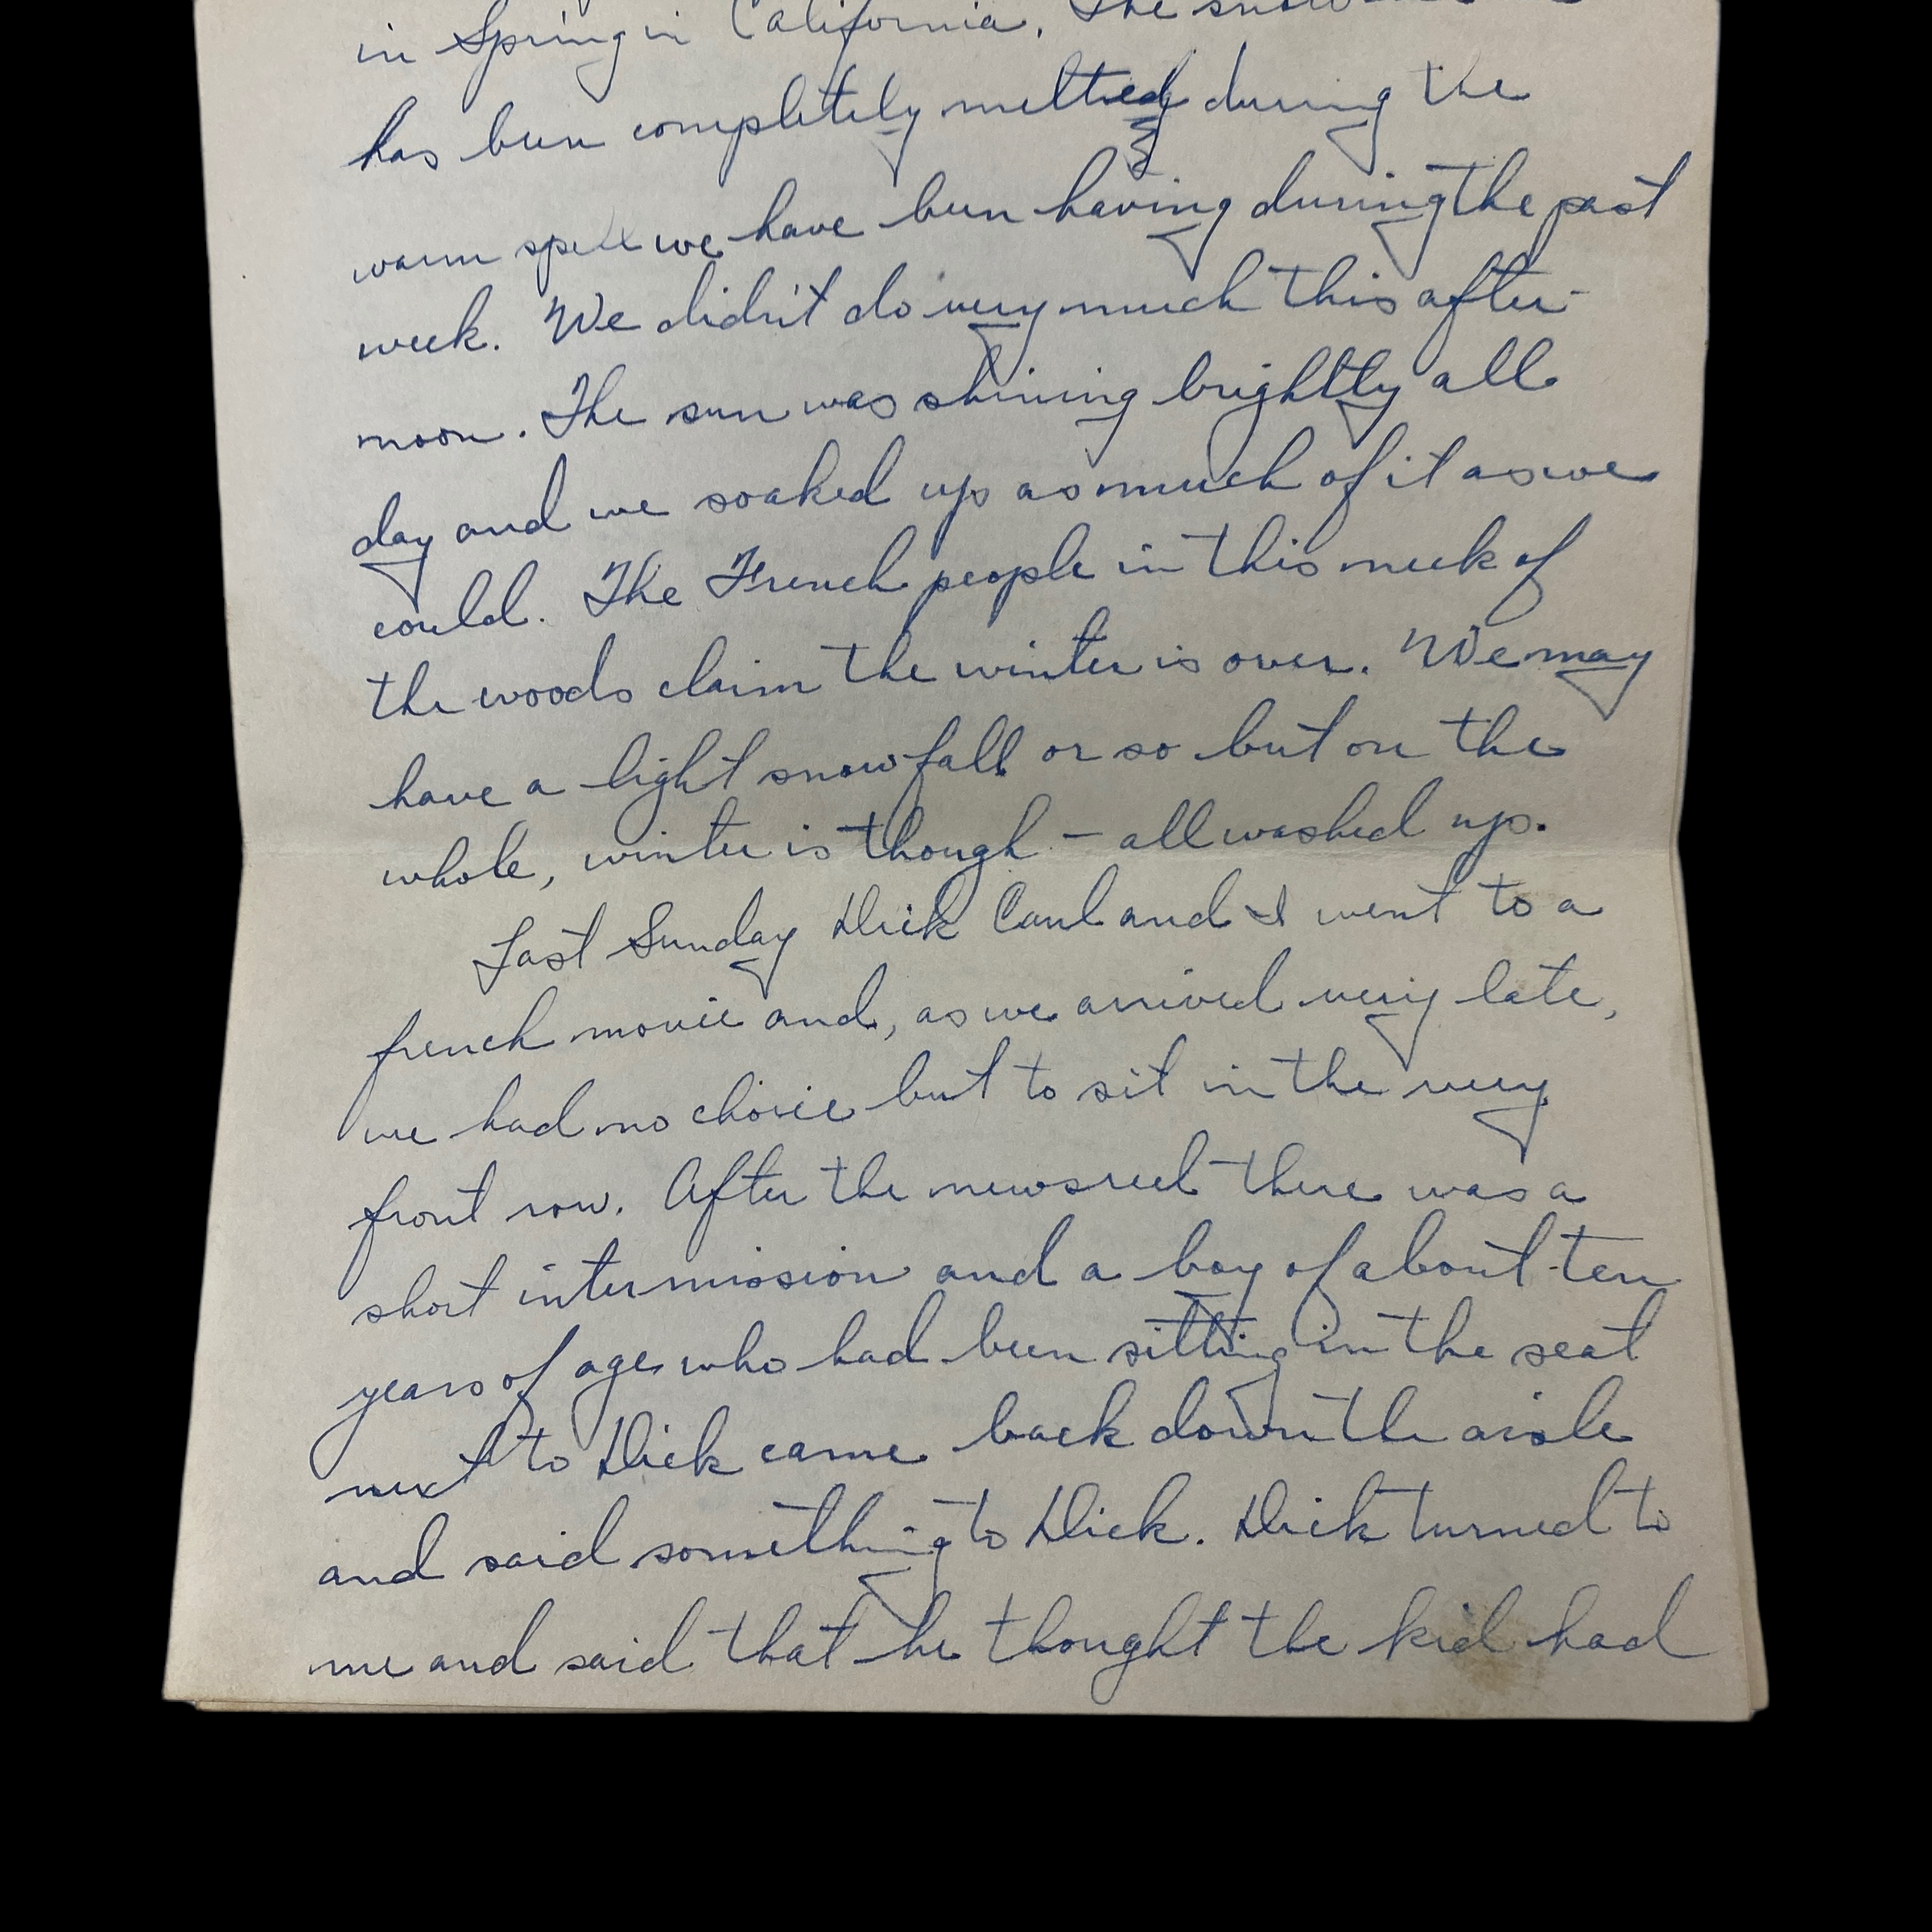 in Spring in California. The snow
has been completely melted during the
warm spell we have been having during the past
week. We didn't do very much this after-
noon. The sun was shining brightly all
day and we soaked up as much of it as we
could. The French people in this neck of
the woods claim the winter is over. We may
have a light snowfall or so but on the
whole, winter is though - all washed up.
Last Sunday Dick Caul and I went to a
french movie and, as we arrived very late,
we had no choice but to sit in the very
front row. After the newsreel there was a
short intermission and a boy of about ten
years of age who had been sitting in the seat
next to Dick came back down the aisle
and said something to Dick. Dick turned to
me and said that he thought the kid had